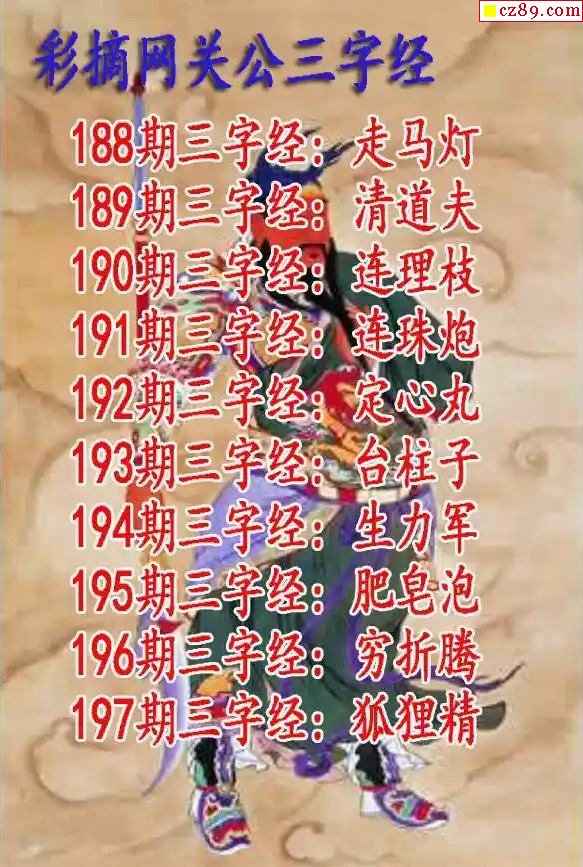 cz89.com
彩摘网关公三字经
188期三字经：走马灯
189期三字经：清道夫
190期三字经：连理枝
191期三字经：连珠炮
192期三字经：定心丸
193期三字经：台柱子
194期三字经：生力军
195期三字经：肥皂泡
196期三字经：穷折腾
197期三字经：狐狸精